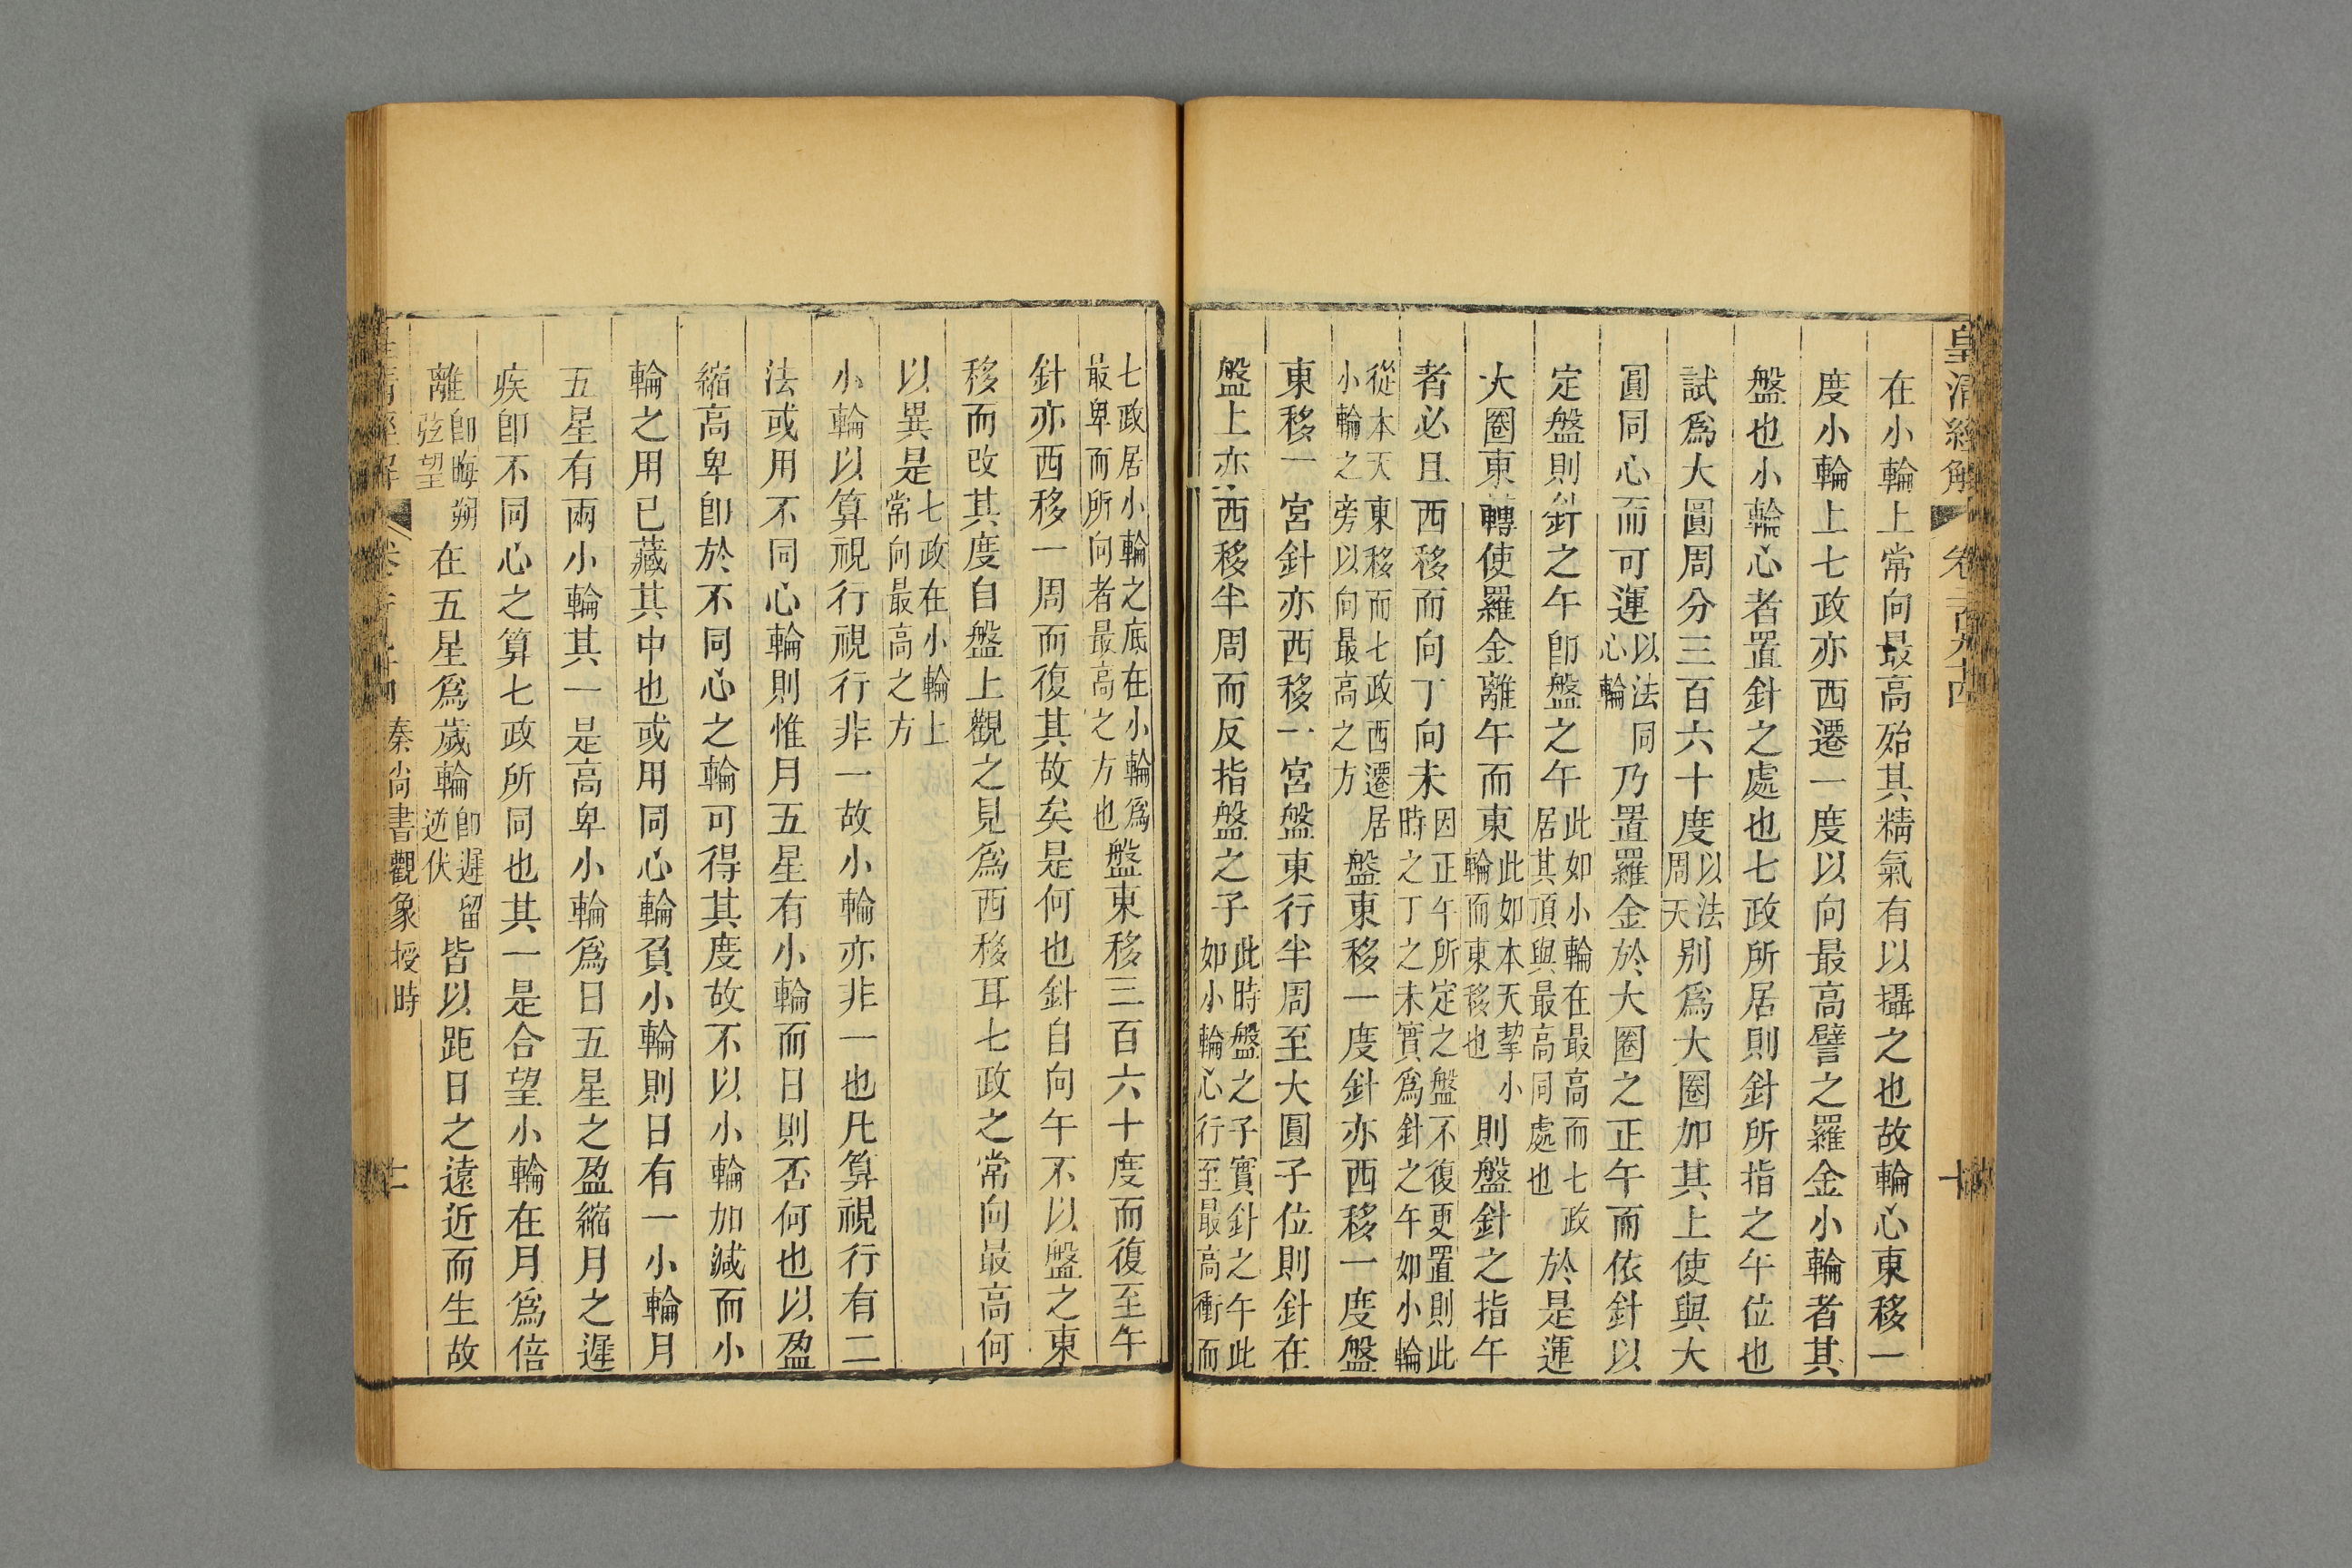 皇清經解
卷二百九十四
十
在小輪上常向最高殆其精氣有以攝之也故輪心東移一
度小輪上七政亦西遷一度以向最高譬之羅金小輪者其
盤也小輪心者置針之處也七政所居則針所指之午位也
試爲大圓周分三百六十度以法周天别爲大圈加其上使與大
圓同心而可運以法同心輪乃置羅金於大圈之正午而依針以
定盤則針之午卽盤之午此如小輪在最高而七政居其頂與最高同處也於是運
大圈東轉使羅金離午而東此如本天挈小輪而東移也則盤針之指午
者必且西移而向丁向未因正午所定之盤不復更置則此時之丁之未實爲針之午如小輪
從本天東移而七政西遷居小輪之旁以向最高之方盤東移一度針亦西移一度盤
東移一宮針亦西移一宮盤東行半周至大圓子位則針在
盤上亦西移半周而反指盤之子此時盤之子實針之午此如小輪心行至最高衝而
七政居小輪之底在小輪爲最卑而所向者最高之方也盤東移三百六十度而復至午
針亦西移一周而復其故矣是何也針自向午不以盤之東
移而改其度自盤上觀之見爲西移耳七政之常向最高何
以異是七政在小輪上常向最高之方
小輪以算視行視行非一故小輪亦非一也凡算視行有二
法或用不同心輪則惟月五星有小輪而日則否何也以盈
縮高卑卽於不同心之輪可得其度故不以小輪加減而小
輪之用已藏其中也或用同心輪負小輪則日有一小輪月
五星有兩小輪其一是高卑小輪爲日五星之盈縮月之遲
疾卽不同心之算七政所同也其一是合望小輪在月爲倍
離卽晦朔弦望在五星爲歲輪卽遲留逆伏皆以距日之遠近而生故
秦尚書觀象授時